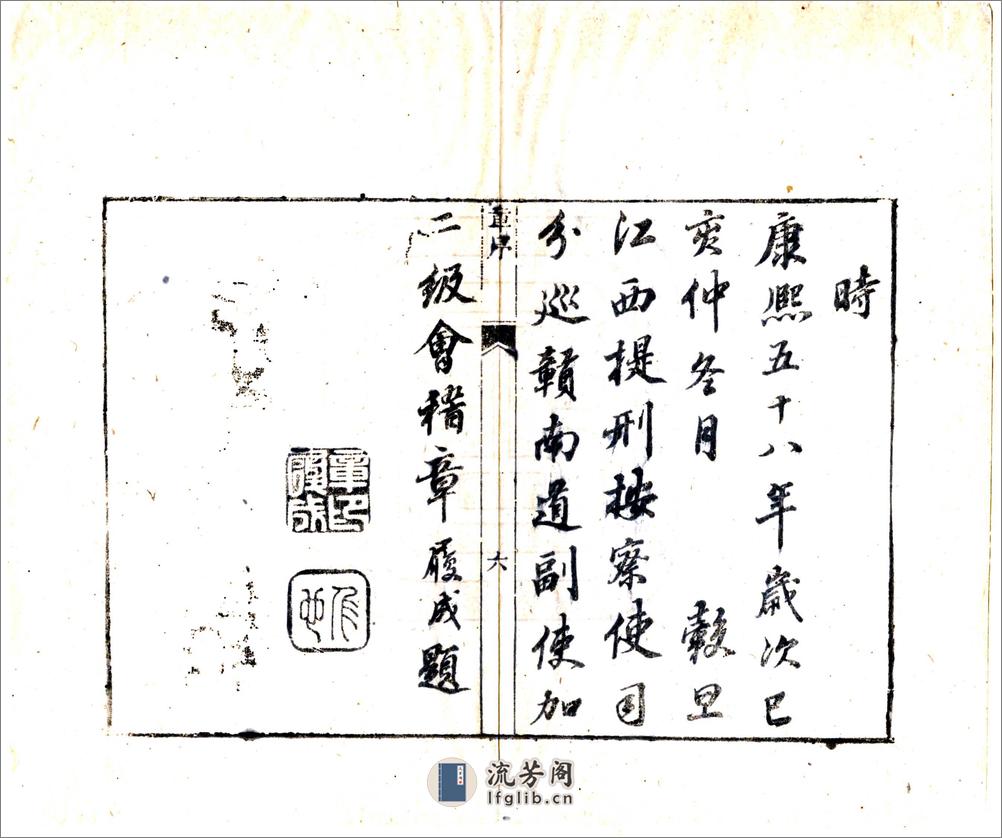 時
康熙五十八年歲次已
亥仲冬月 穀旦
江西提刑按察使司
分巡贛南道副使加
二級會稽章履成題
章序
六
章印
履成
流芳阁
lfglib.cn